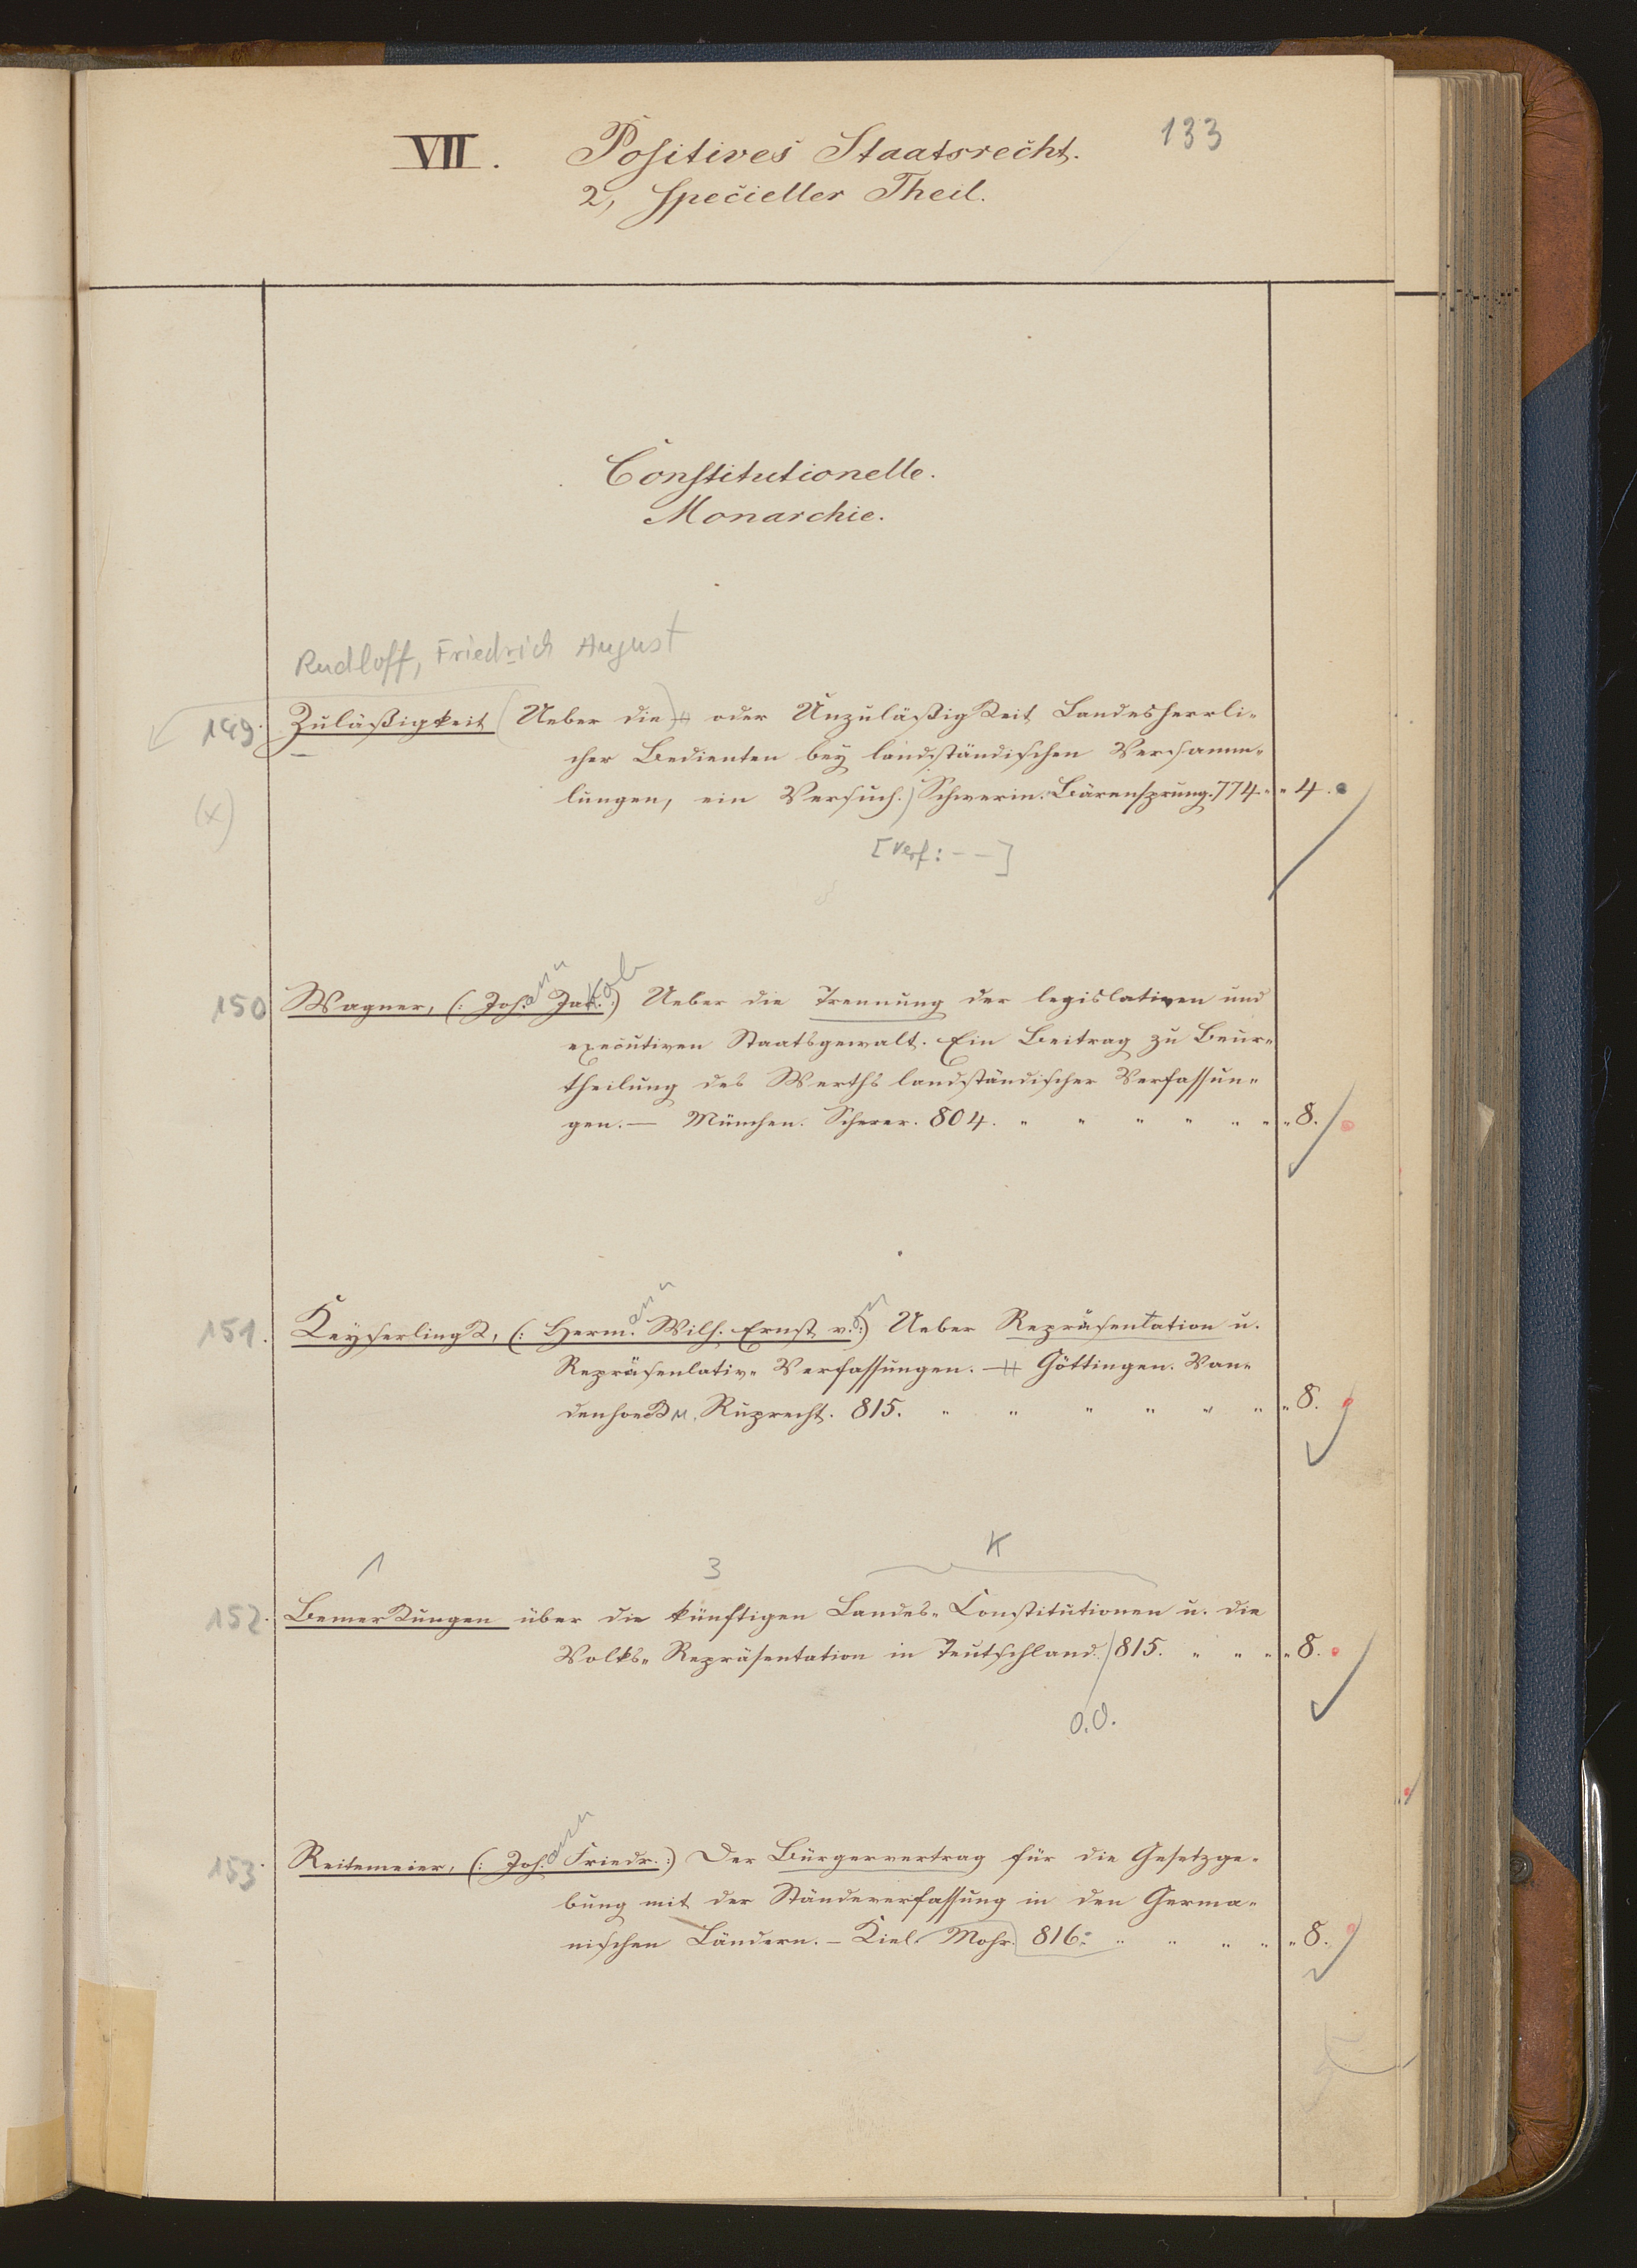 133
VII. Positives Staatsrecht.
2, Specieller Theil.
Constitutionelle.
Monarchie.
Rudloff, Friedrich August
149. Zuläßigkeit (Ueber die) oder Unzuläßigkeit Landesherrli-
cher Bedienten bey landständischen Versamm-
lungen, ein Versuch.) Schwerin. Bärensprung. 774. " " 4.
(x)
[Verf: - - ]
150 Wagner, (: Joh.ann Jak.ob :) Ueber die Trennung der legislativen und
executiven Staatsgewalt. Ein Beitrag zu Beur-
theilung des Werths landständischer Verfassun-
gen. — München. Scherer. 804. " " " " " " " 8.
151. Keyserlingk, (: Herm.ann Wilh. Ernst v.on :) Ueber Repräsentation u.
Repräsentativ- Verfassungen. — Göttingen. Van-
denhoeck u. Ruprecht. 815. " " " " " " " 8.
1 3 K
152. Bemerkungen über die künftigen Landes- Constitutionen u. die
Volks- Repräsentation in Teutschland. / 815. " " " " 8.
O.O.
153. Reitemeier, (: Joh.ann Friedr. :) Der Bürgervertrag für die Gesetzge-
bung mit der Ständeverfassung in den Germa-
nischen Ländern. — Kiel. Mohr. 816. " " " " " 8.